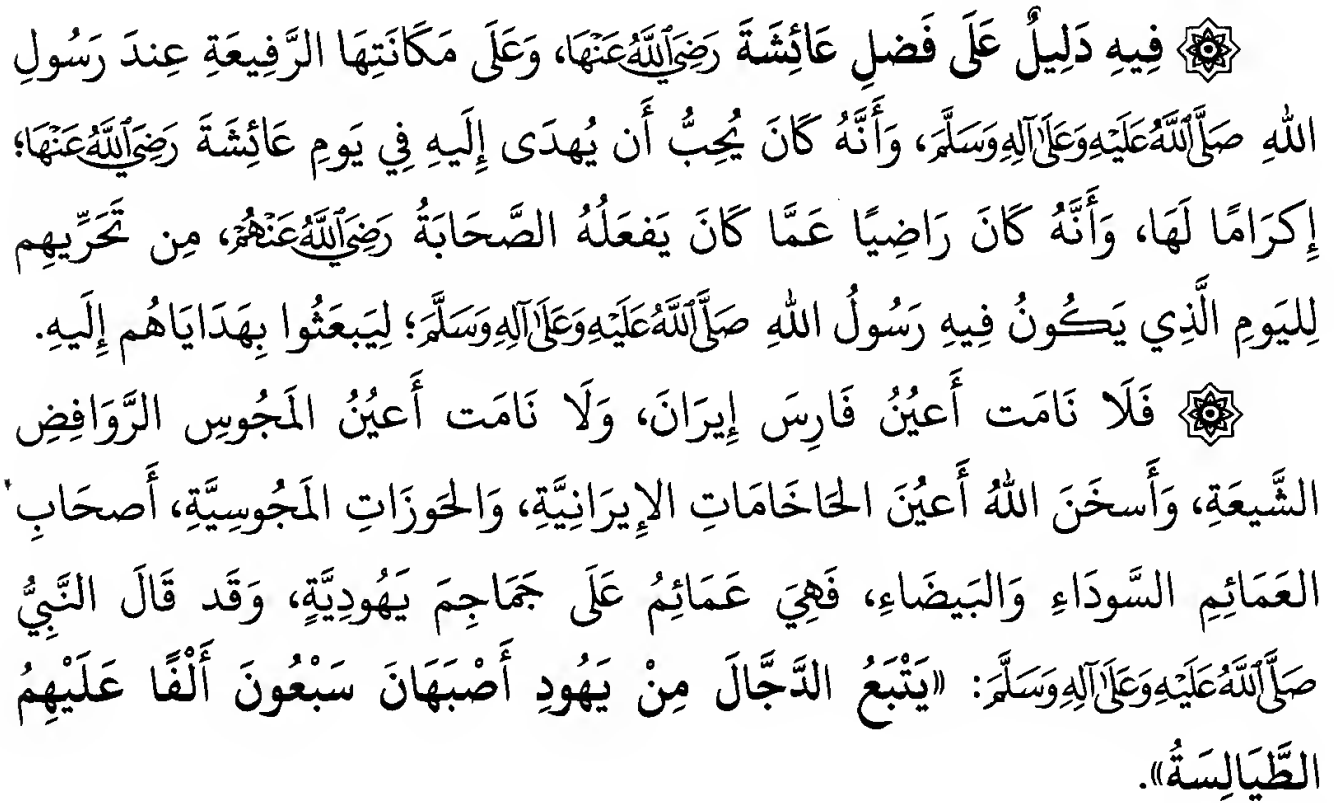 ۞ فِيهِ دَلِيلٌ عَلَى فَضلِ عَائِشَةَ رَضِيَ اللَّهُ عَنْهَا، وَعَلَى مَكَانَتِهَا الرَّفِيعَةِ عِندَ رَسُولِ
اللهِ صَلَّى اللَّهُ عَلَيْهِ وَعَلَى آلِهِ وَسَلَّمَ، وَأَنَّهُ كَانَ يُحِبُّ أَن يُهدَى إِلَيهِ فِي يَومِ عَائِشَةَ رَضِيَ اللَّهُ عَنْهَا؛
إِكرَامًا لَهَا، وَأَنَّهُ كَانَ رَاضِيًا عَمَّا كَانَ يَفعَلُهُ الصَّحَابَةُ رَضِيَ اللَّهُ عَنْهُمْ، مِن تَحَرِّيهِم
لِليَومِ الَّذِي يَكُونُ فِيهِ رَسُولُ اللهِ صَلَّى اللَّهُ عَلَيْهِ وَعَلَى آلِهِ وَسَلَّمَ؛ لِيَبعَثُوا بِهَدَايَاهُم إِلَيهِ.
۞ فَلَا نَامَت أَعيُنُ فَارِسَ إِيرَانَ، وَلَا نَامَت أَعيُنُ المَجُوسِ الرَّوَافِضِ
الشَّيعَةِ، وَأَسخَنَ اللهُ أَعيُنَ الحَاخَامَاتِ الإِيرَانِيَّةِ، وَالحَوزَاتِ المَجُوسِيَّةِ، أَصحَابِ
العَمَائِمِ السَّودَاءِ وَالبَيضَاءِ، فَهِيَ عَمَائِمُ عَلَى جَمَاجِمَ يَهُودِيَّةٍ، وَقَد قَالَ النَّبِيُّ
صَلَّى اللَّهُ عَلَيْهِ وَعَلَى آلِهِ وَسَلَّمَ: «يَتْبَعُ الدَّجَّالَ مِنْ يَهُودِ أَصْبَهَانَ سَبْعُونَ أَلْفًا عَلَيْهِمُ
الطَّيَالِسَةُ».